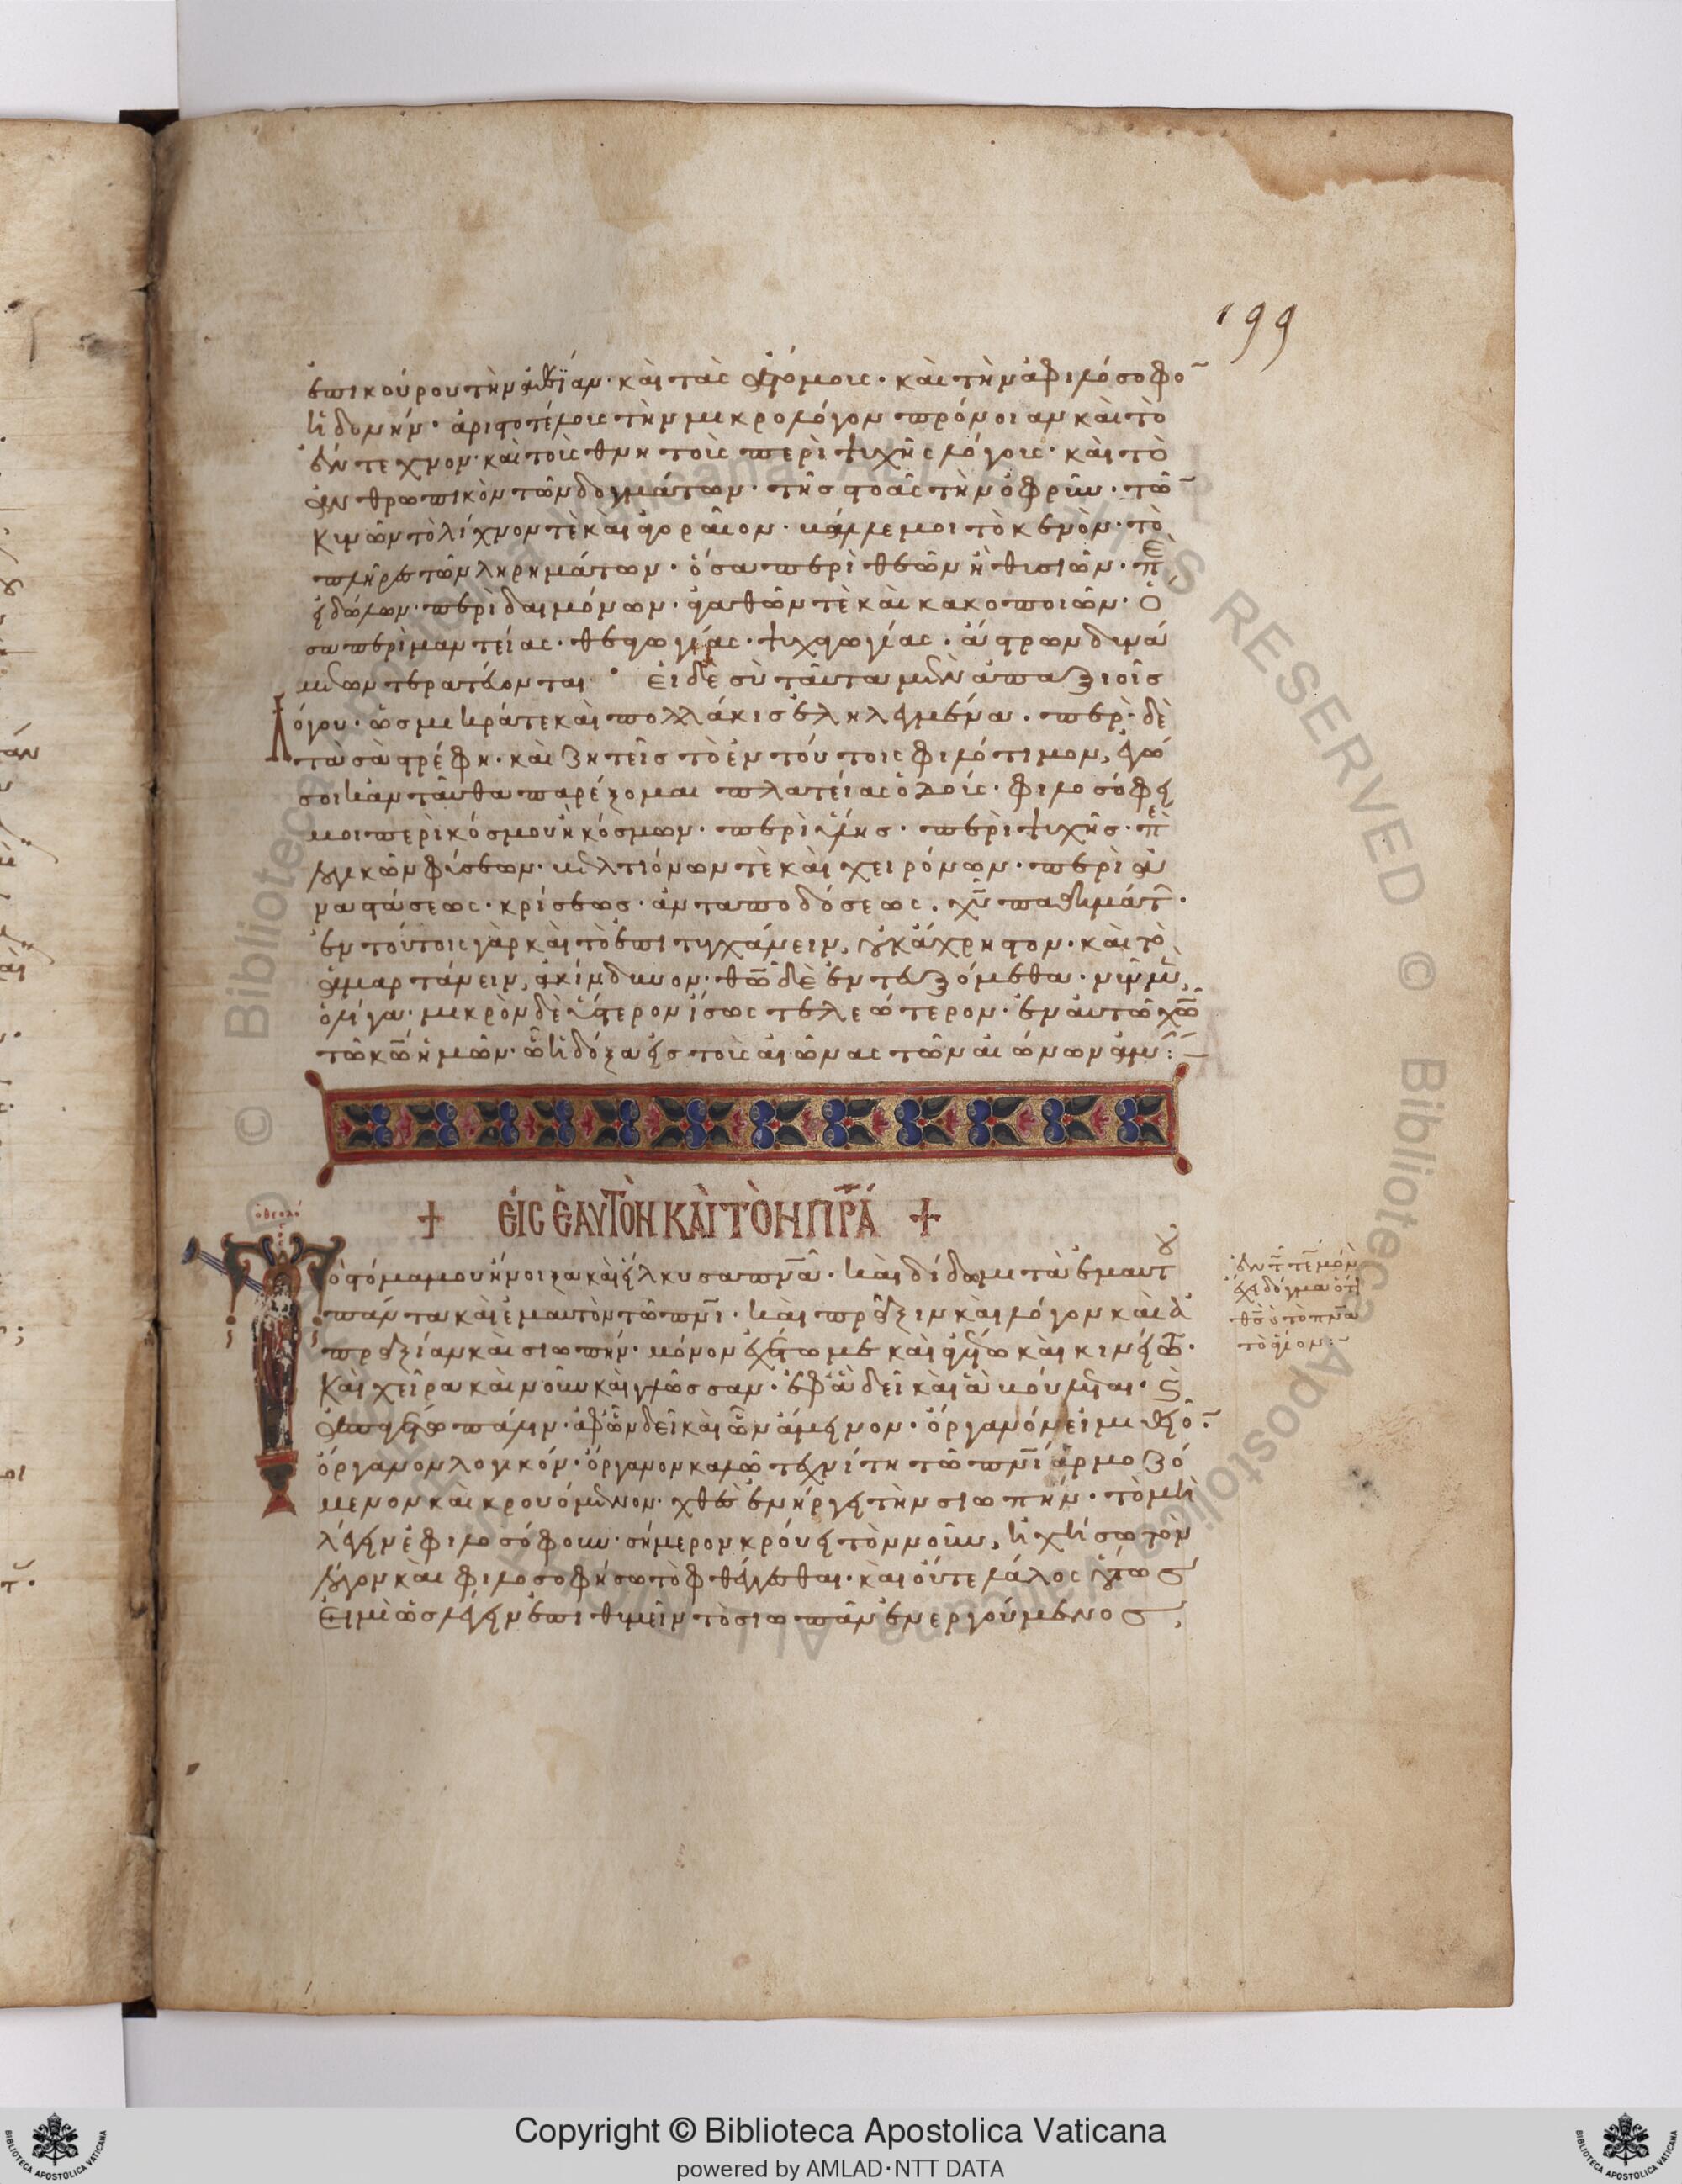 199
ἐπικούρου τὴν ἀθεΐαν· καὶ τὰς ἀτόμους· καὶ τὴν ἀφιλόσοφο̅
ἡδονήν· ἀριστοτέλους τὴν μικρολόγον πρόνοιαν καὶ τὸ
ἔντεχνον· καὶ τοὺς θνητοὺς περὶ ψυχῆς λόγους· καὶ τὸ
ἀνθρωπικὸν τῶν δογμάτων· τῆς στοᾶς τὴν ὀφρῦν· τῶ̅
κυνῶν τὸ λίχνον τὲ καὶ ἀγοραῖον· βάλλε μοι τὸ κενὸν· τὸ
πλῆρες τῶν ληρημάτων· ὅσα περὶ θεῶν ἢ θυσιῶν· πε
εἰδώλων· περὶ δαιμόνων· ἀγαθῶν τὲ καὶ κακοποιῶν· ὅ
σα περὶ μαντείας· θεαγωγίας· ψυχαγωγίας· ἄστρων δυνά
μεων τερατεύονται· Εἰ δὲ σὺ ταῦτα μὲν ἀπαξιοῖς
λόγου· ὡς μικρά τε καὶ πολλάκις ἐληλεγμένα· περὶ δὲ
τὰ σὰ στρέφῃ· καὶ ζητεῖς τὸ ἐν τούτοις φιλότιμον, ἐγώ
σοι κἀνταῦθα παρέξομαι πλατείας ὁδούς· φιλοσόφει
μοι περὶ κόσμου ἢ κόσμων· περὶ ὕλης· περὶ ψυχῆς· πε
λογικῶν φύσεων· βελτιόνων τὲ καὶ χειρόνων· περὶ ἀ
ναστάσεως· κρίσεως· ἀνταποδόσεως· χυ̅ παθημάτ·
ἐν τούτοις γὰρ καὶ τὸ ἐπιτυγχάνειν, οὐκ ἄχρηστον· καὶ τὸ
ἁμαρτάνειν, ἀκίνδυνον· θω̅ δὲ ἐντευξόμεθα· νῦν μὲν,
ὀλίγα· μικρὸν δὲ ὕστερον ἴσως τελεώτερον· ἐν αὐτῶ χω̅
τῶ κω̅ ἡμῶν· ὧ ἡ δόξα εἰς τοὺς αἰῶνας τῶν αἰώνων ἀμήν:–
+ ΕΙΣ ΕΑΥΤΟΝ ΚΑΙ ΤΟΝ ΠΡ̅Α +
ὁ θεολό
Τὸ στόμα μου ἤνοιξα καὶ εἵλκυσα πνα̅· καὶ δίδωμι τὰ ἐμαυτοῦ
πάντα καὶ ἐμαυτὸν τῶ πνι̅· καὶ πρᾶξιν καὶ λόγον καὶ ἀ
πραξίαν καὶ σιωπήν· μόνον ἐχέτω με καὶ ἀγέτω καὶ κινείτω·
καὶ χεῖρα καὶ νοῦν καὶ γλῶσσαν· ἐφ' ἃ δεῖ καὶ ἃ βούλεται· καὶ
ἀπαγέτω πάλιν· ἀφ' ὧν δεῖ καὶ ὧν ἄμεινον· ὄργανόν εἰμι θεῖο̅·
ὄργανον λογικόν· ὄργανον καλῶ τεχνίτῃ τῶ πνι̅ ἁρμοζό
μενον καὶ κρουόμενον· χθὲς ἐνήργει τὴν σιωπήν· τὸ μὴ
λέγειν ἐφιλοσόφουν· σήμερον κρούει τὸν νοῦν, ἠχήσω τὸν
λόγον καὶ φιλοσοφήσω τὸ φθέγγεσθαι· καὶ οὔτε λάλος οὕτως
εἰμὶ ὡς λέγειν ἐπιθυμεῖν τὸ σιωπᾶν ἐνεργούμενος,